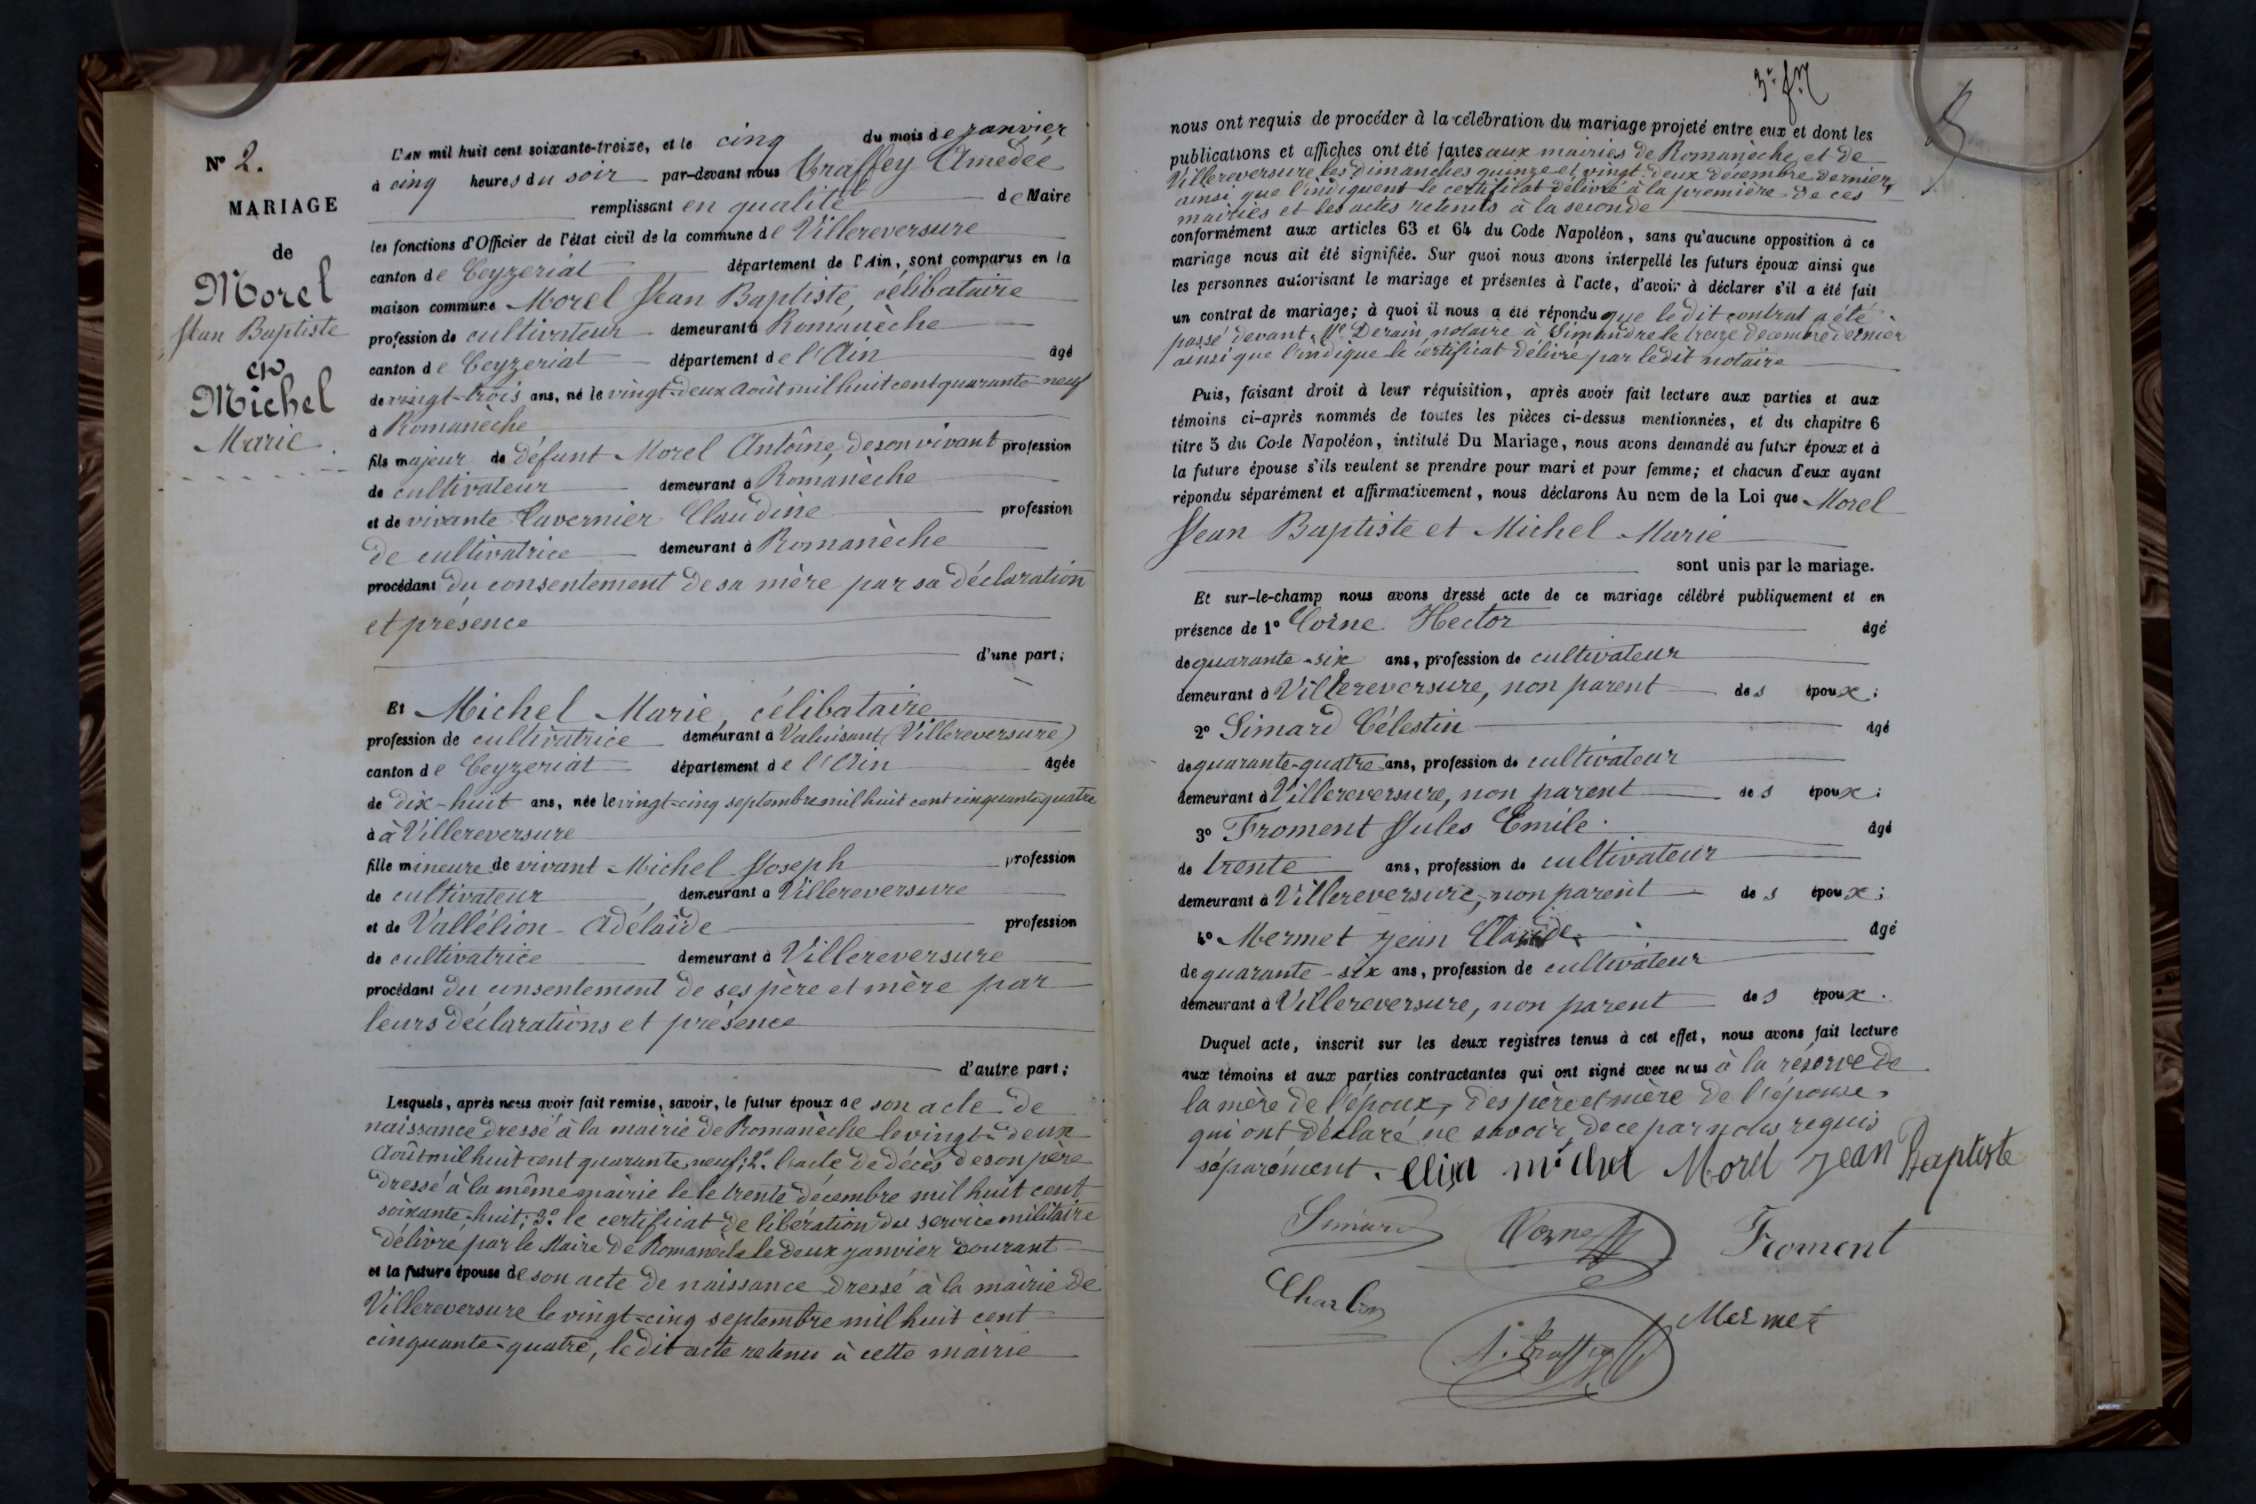 N° 2.
MARIAGE
de
Morel
Jean Baptiste
et
Michel
Marie
L'AN mil huit cent soixante-treize, et le cinq du mois de janvier
à cinq heures du soir par-devant nous Amédée
remplissant en qualité de Maire
les fonctions d'Officier de l'état civil de la commune de Villereversure
canton de Ceyzeriat département de l'Ain, sont comparus en la
maison commune Morel Jean Baptiste, célibataire
profession de cultivateur demeurant à Romanèche
canton de Ceyzeriat département de l'Ain âgé
de vingt-trois ans, né le vingt-deux août mil huit cent quarante-neuf
à Romanèche
fils majeur de défunt Morel Antoine, de son vivant profession
de cultivateur demeurant à Romanèche
et de vivante Tavernier Claudine profession
de cultivatrice demeurant à Romanèche
procédant du consentement de sa mère par sa déclaration
et présence
d'une part;
Et Michel Marie, célibataire
profession de cultivatrice demeurant à Valuisant (Villereversure)
canton de Ceyzeriat département de l'Ain âgée
de dix-huit ans, née le vingt-cinq septembre mil huit cent cinquante quatre
à à Villereversure
fille mineure de vivant Michel Joseph profession
de cultivateur demeurant à Villereversure
et de Vallélion Adélaïde profession
de cultivatrice demeurant à Villereversure
procédant du consentement de ses père et mère par
leurs déclarations et présence
d'autre part;
Lesquels, après nous avoir fait remise, savoir, le futur époux de son acte de
naissance dressé à la mairie de Romanèche le vingt-deux
août mil huit cent quarante neuf; 2° l'acte de décès de son père
dressé à la même mairie le le trente décembre mil huit cent
soixante-huit; 3° le certificat de libération du service militaire
délivré par le Maire de Romanèche le deux janvier courant
et la future épouse de son acte de naissance dressé à la mairie de
Villereversure le vingt-cinq septembre mil huit cent
cinquante-quatre, le dit acte retenu à cette mairie
nous ont requis de procéder à la célébration du mariage projeté entre eux et dont les
publications et affiches ont été faites aux mairies de Romanèche et de
Villereversure les dimanches quinze et vingt-deux décembre dernier,
ainsi que l'indiquent le certificat délivré à la première de ces
mairies et les actes retenus à la seconde
conformément aux articles 63 et 64 du Code Napoléon, sans qu'aucune opposition à ce
mariage nous ait été signifiée. Sur quoi nous avons interpellé les futurs époux ainsi que
les personnes autorisant le mariage et présentes à l'acte, d'avoir à déclarer s'il a été fait
un contrat de mariage; à quoi il nous a été répondu que le dit contrat a été
passé devant Me Derain notaire à Simandre le treize décembre dernier
ainsi que l'indique le certificat délivré par le dit notaire
Puis, faisant droit à leur réquisition, après avoir fait lecture aux parties et aux
témoins ci-après nommés de toutes les pièces ci-dessus mentionnées, et du chapitre 6
titre 5 du Code Napoléon, intitulé Du Mariage, nous avons demandé au futur époux et à
la future épouse s'ils veulent se prendre pour mari et pour femme; et chacun d'eux ayant
répondu séparément et affirmativement, nous déclarons Au nom de la Loi que Morel
Jean Baptiste et Michel Marie
sont unis par le mariage.
Et sur-le-champ nous avons dressé acte de ce mariage célébré publiquement et en
présence de 1° Corne Hector âgé
de quarante-six ans, profession de cultivateur
demeurant à Villereversure, non parent des époux;
2° Simard Célestin âgé
de quarante-quatre ans, profession de cultivateur
demeurant à Villereversure, non parent des époux;
3° Froment Jules Emile âgé
de trente ans, profession de cultivateur
demeurant à Villereversure, non parent des époux;
4° Mermet Jean Claude âgé
de quarante-six ans, profession de cultivateur
demeurant à Villereversure, non parent des époux.
Duquel acte, inscrit sur les deux registres tenus à cet effet, nous avons fait lecture
aux témoins et aux parties contractantes qui ont signé avec nous à la réserve de
la mère de l'époux, des père et mère de l'épouse,
qui ont déclaré ne savoir, de ce par nous requis
séparément. Elisa michel Morel Jean Baptiste
Simard Corne Froment
Mermet